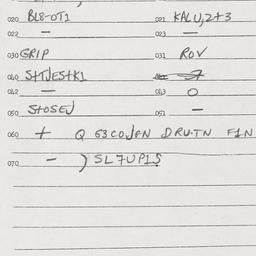 020 BL8-OT1 021 KALU,2+3
022 — 023 —
030 GRIP 031 ROV
040 S+TJES+K1
042 — 043 O
050 S+OSEJ 051 —
060 + Q 63COJFN DRU.TN F1N
070 — ) SL7UP1S